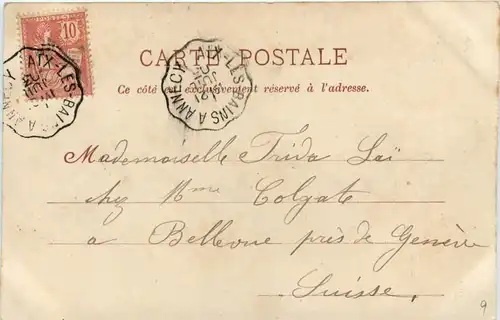 10
AIX-LES-BAINS A ANNECY
AIX-LES-BAINS A ANNECY
CARTE POSTALE
Ce côté est exclusivement réservé à l'adresse.
Mademoiselle Frida Laï
chez Mme Colgate
a Bellevue près de Genève
Suisse.
9